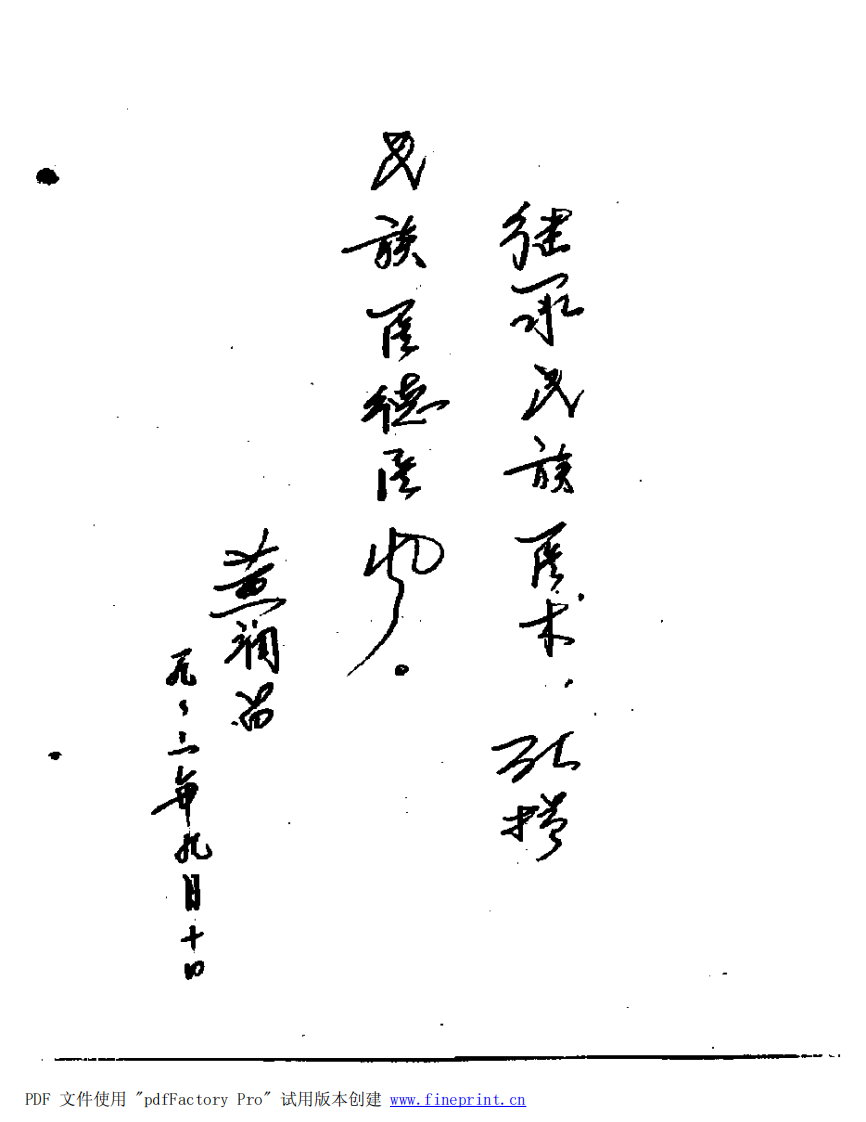 继承民族医术、弘扬
民族医德医风。
三年九月十
PDF 文件使用 "pdfFactory Pro" 试用版本创建 www.fineprint.cn